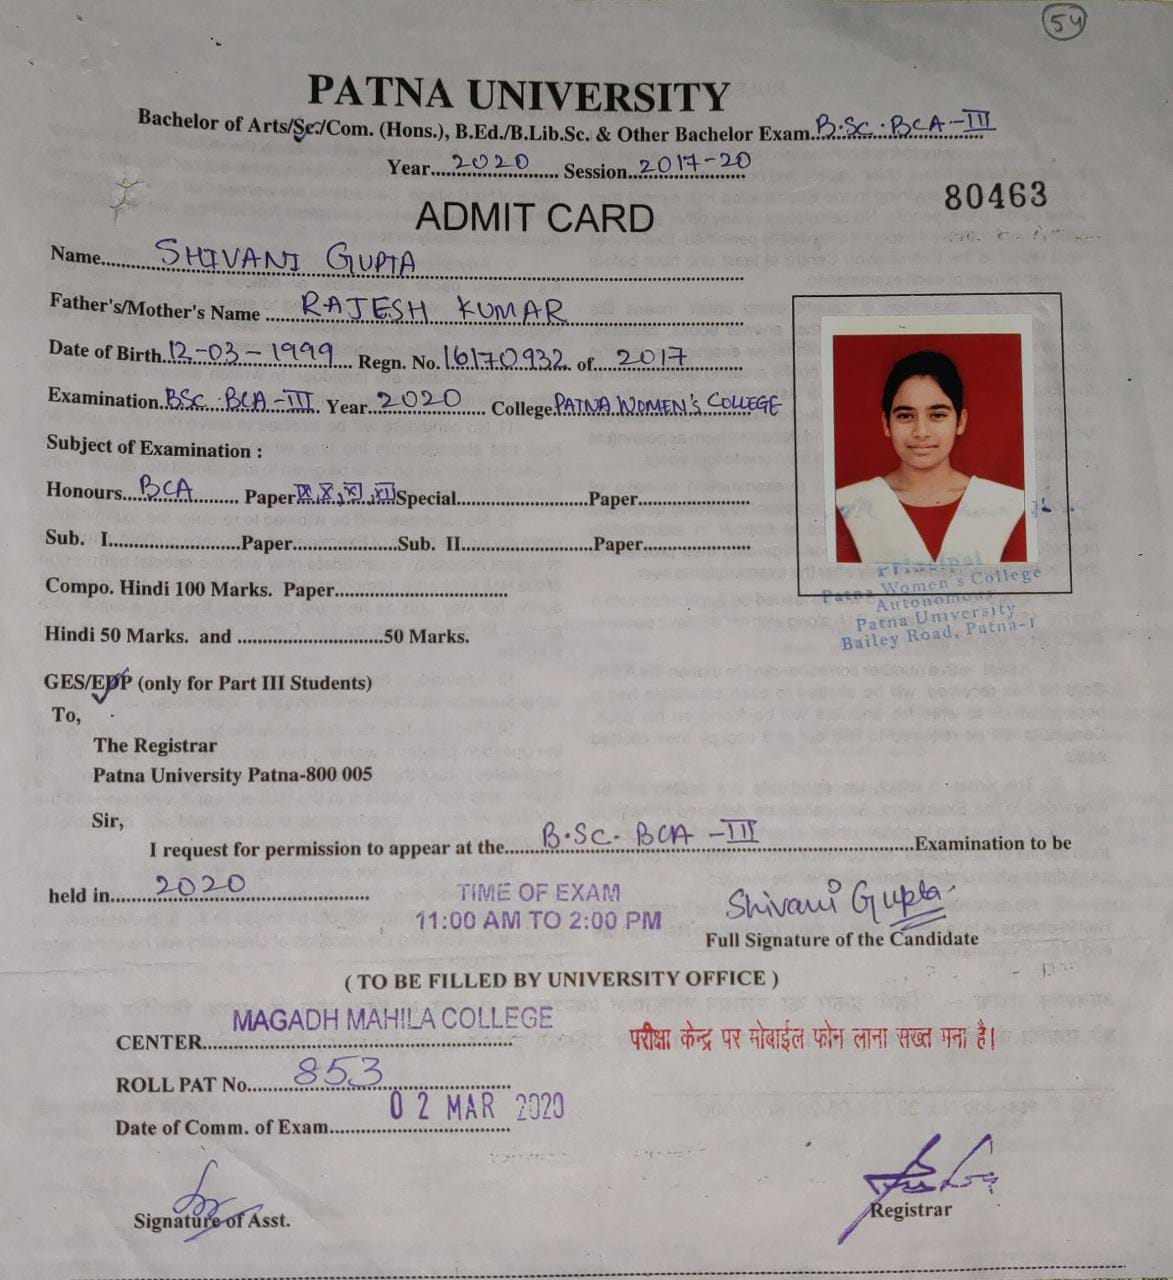 54
PATNA UNIVERSITY
Bachelor of Arts/Sc./Com. (Hons.), B.Ed./B.Lib.Sc. & Other Bachelor Exam. B.Sc. BCA-III
Year 2020 Session 2017-20
80463
ADMIT CARD
Name SHIVANI GUPTA
Father's/Mother's Name RAJESH KUMAR
Date of Birth 12-03-1999 Regn. No. 16170932 of 2017
Examination BSC. BCA-III Year 2020 College PATNA WOMEN'S COLLEGE
Subject of Examination :
Honours BCA Paper IX, X, XI, XII Special Paper
Sub. I Paper Sub. II Paper
Principal
Patna Women's College
Autonomous
Patna University
Bailey Road, Patna-1
Compo. Hindi 100 Marks. Paper
Hindi 50 Marks. and 50 Marks.
GES/EDP (only for Part III Students)
To,
The Registrar
Patna University Patna-800 005
Sir,
I request for permission to appear at the B.Sc. BCA-III Examination to be
held in 2020
TIME OF EXAM
11:00 AM TO 2:00 PM
Shivani Gupta
Full Signature of the Candidate
( TO BE FILLED BY UNIVERSITY OFFICE )
CENTER MAGADH MAHILA COLLEGE
परीक्षा केन्द्र पर मोबाईल फोन लाना सख्त मना है।
ROLL PAT No. 853
Date of Comm. of Exam 02 MAR 2020
Signature of Asst.
Registrar